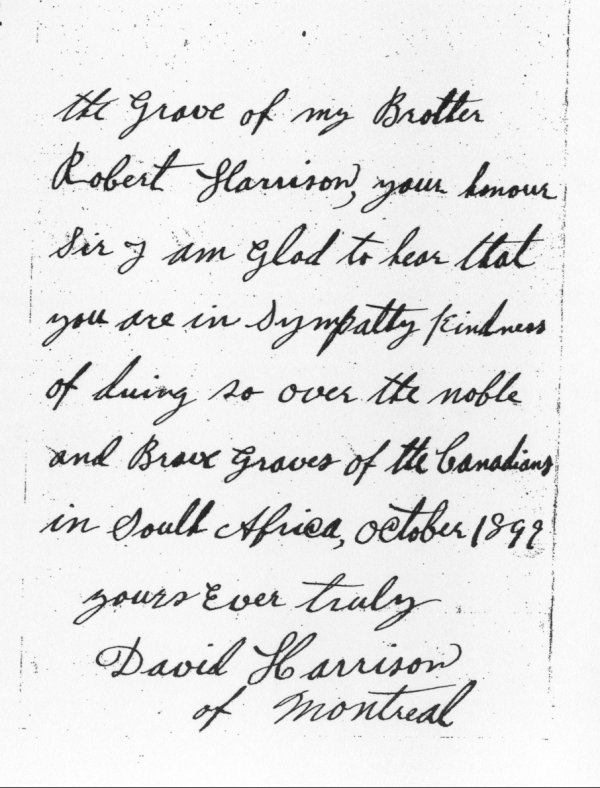 the Grave of my Brother
Robert Harrison, your honour
Sir I am Glad to hear that
you are in Sympatty Kindness
of duing so over the noble
and Brave Graves of the Canadians
in South Africa, October 1899
yours Ever truly
David Harrison
of Montreal